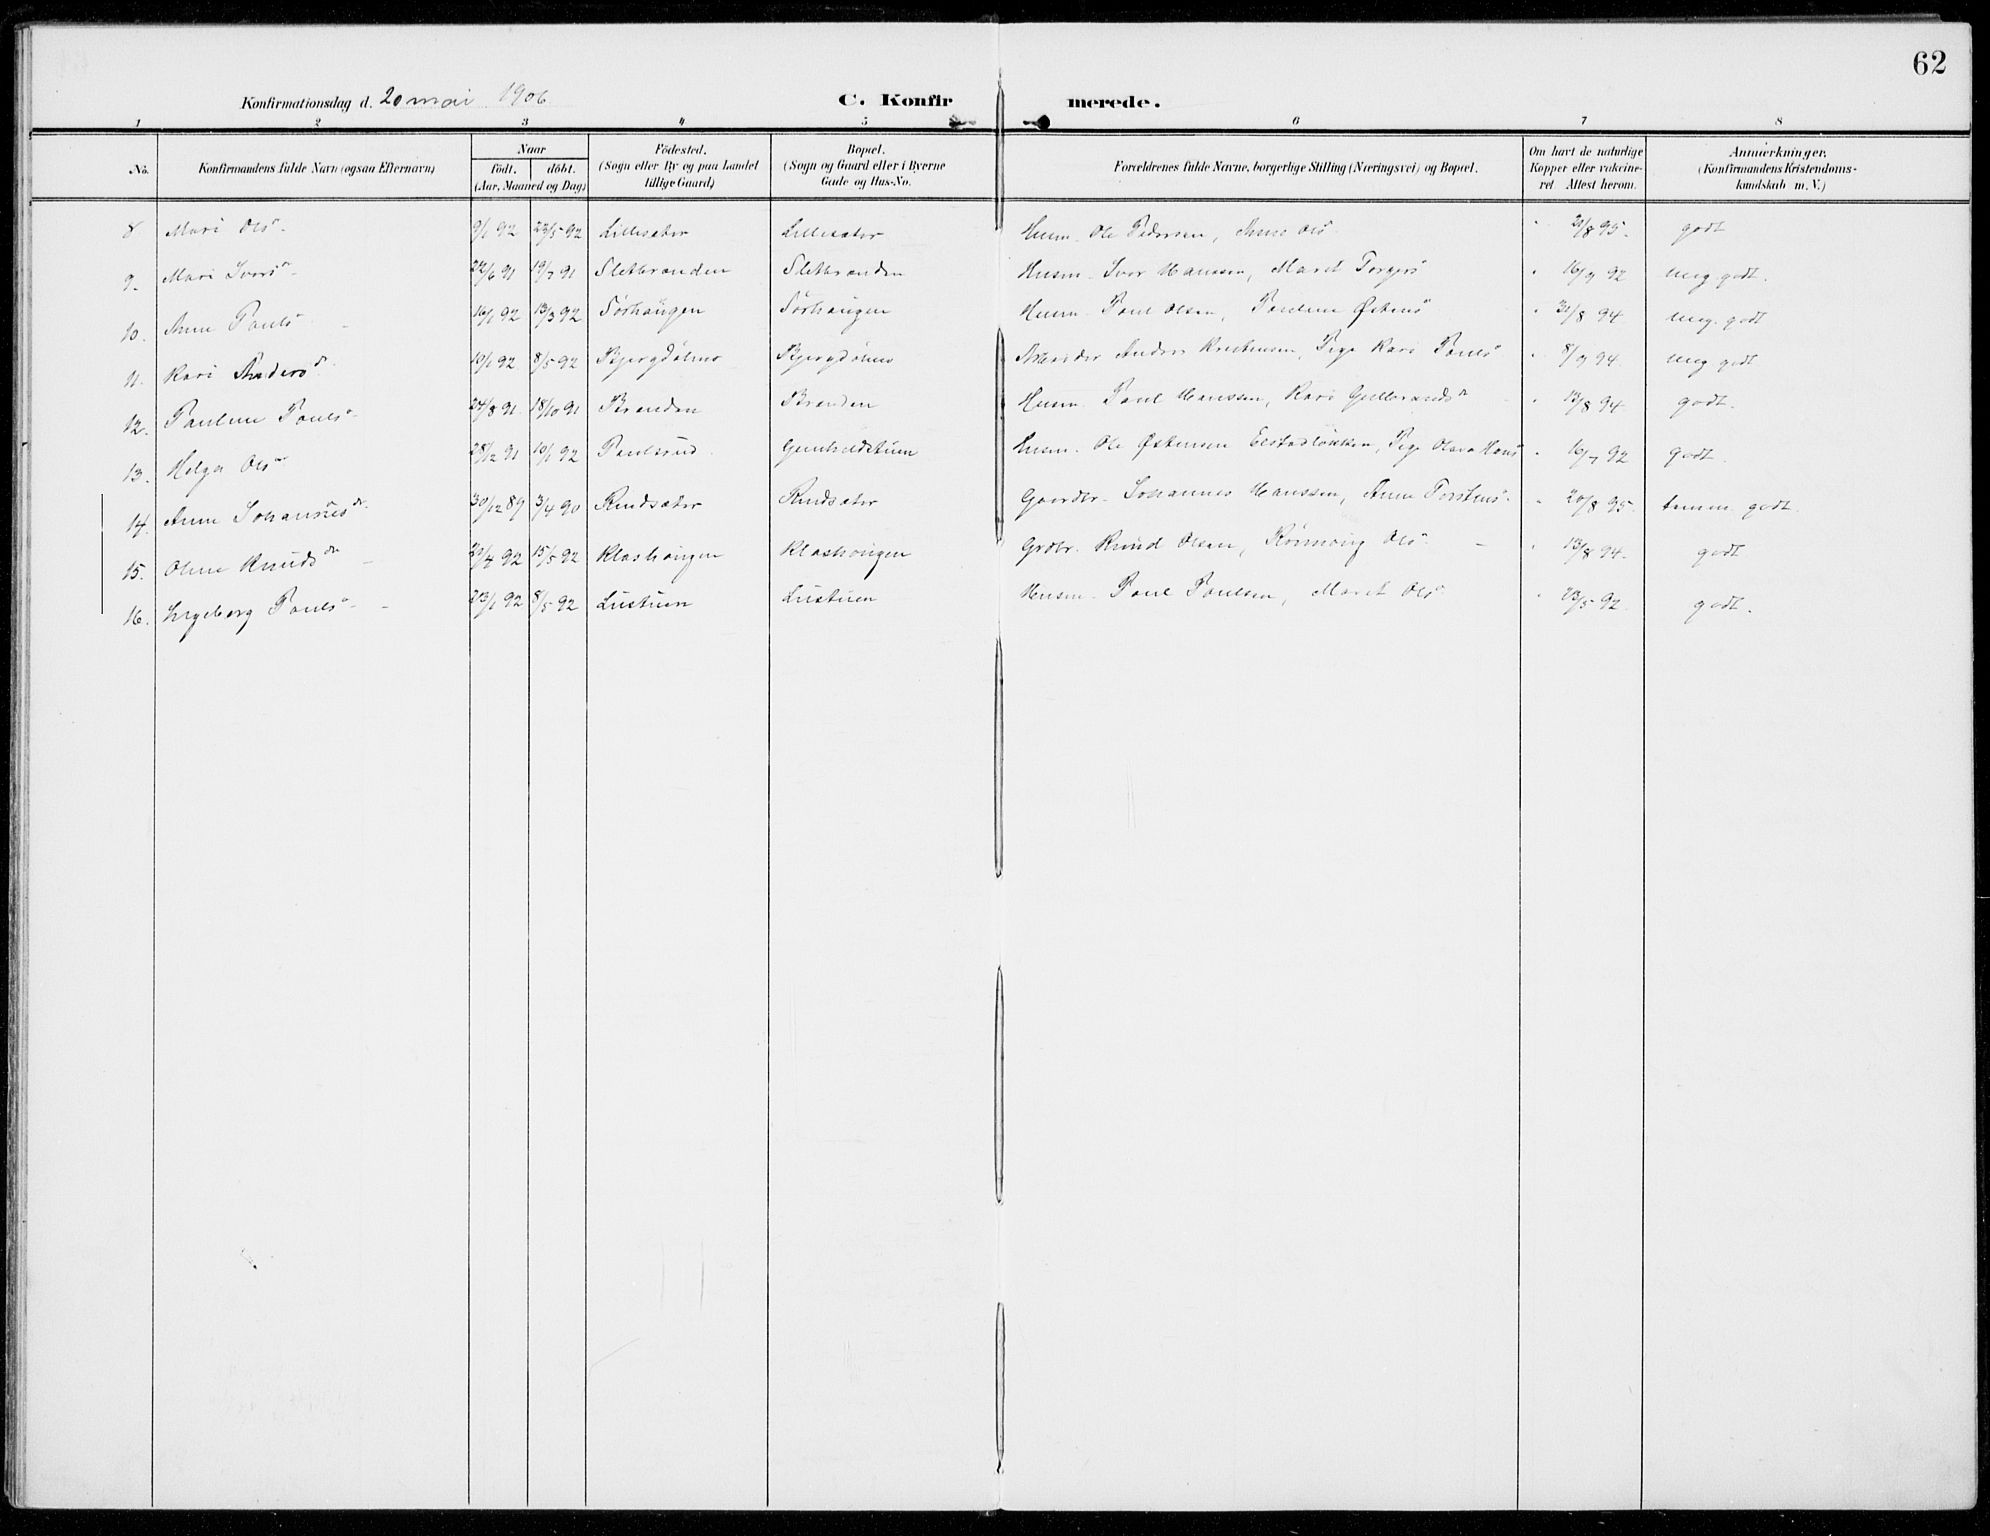 62
Konfirmationsdag d. 20 mai 1906
C. Konfirmerede.
1 2 3 4 5 6 7 8
No. | Konfirmandens fulde Navn (ogsaa Efternavn) | Naar födt. döbt. (Aar, Maaned og Dag) | Födested. (Sogn eller By og paa Landet tillige Gaard) | Bopæl. (Sogn og Gaard eller i Byerne Gade og Hus-No. | Forældrenes fulde Navne, borgerlige Stilling (Næringsvei) og Bopæl. | Om havt de naturlige Kopper eller vakcineret. Attest herom. | Anmærkninger. (Konfirmandens Kristendomskundskab m. V.)
8 Mari Ols 9/1 92 23/5 92 Lillesæter Lillesæter Husm. Ole Pedersen, Anne Ols " 21/8 95. godt
9. Mari Ivers 24/6 91 19/7 91 Sletbranden Sletbranden Husm. Ivar Hanssen, Marit Torgers " 16/9 92 meg. godt.
10. Anne Pauls 16/1 92 13/3 92 Sörhaugen Sörhaugen Husm. Paul Olsen, Pauline Østens " 31/8 94 meg. godt
11. Kari Anders 10/1 92 8/5 92 Bjergdölmo Bjergdölmo Arbeider Anders Kristensen, Pige Kari Pauls " 8/9 94. meg godt
12. Pauline Pauls 24/8 91 18/10 91 Branden Branden Husm. Paul Hanssen, Kari Gulbrands " 13/8 94 godt.
13. Helga Ols 28/12 91 10/1 92 Paulsrud Gunhildstuen Husm. Ole Østensen Elstadløkken, Pige Olava Hans " 16/7 92 godt.
14. Anne Johannes 30/12 89 3/4 90 Rudsæter Rudsæter Gaardbr. Johannes Hanssen, Anne Torstens " 20/8 95. temm. godt.
15. Oline Knuds 15/5 92 Klashaugen Klashaugen Grdbr. Knud Olsen, Rönnaug Ols " 13/8 94. godt
16. Ingeborg Pauls 23/1 92 8/5 92 Lustuen Lustuen Husm. Paul Paulsen, Marit Ols " 23/5 92. godt.